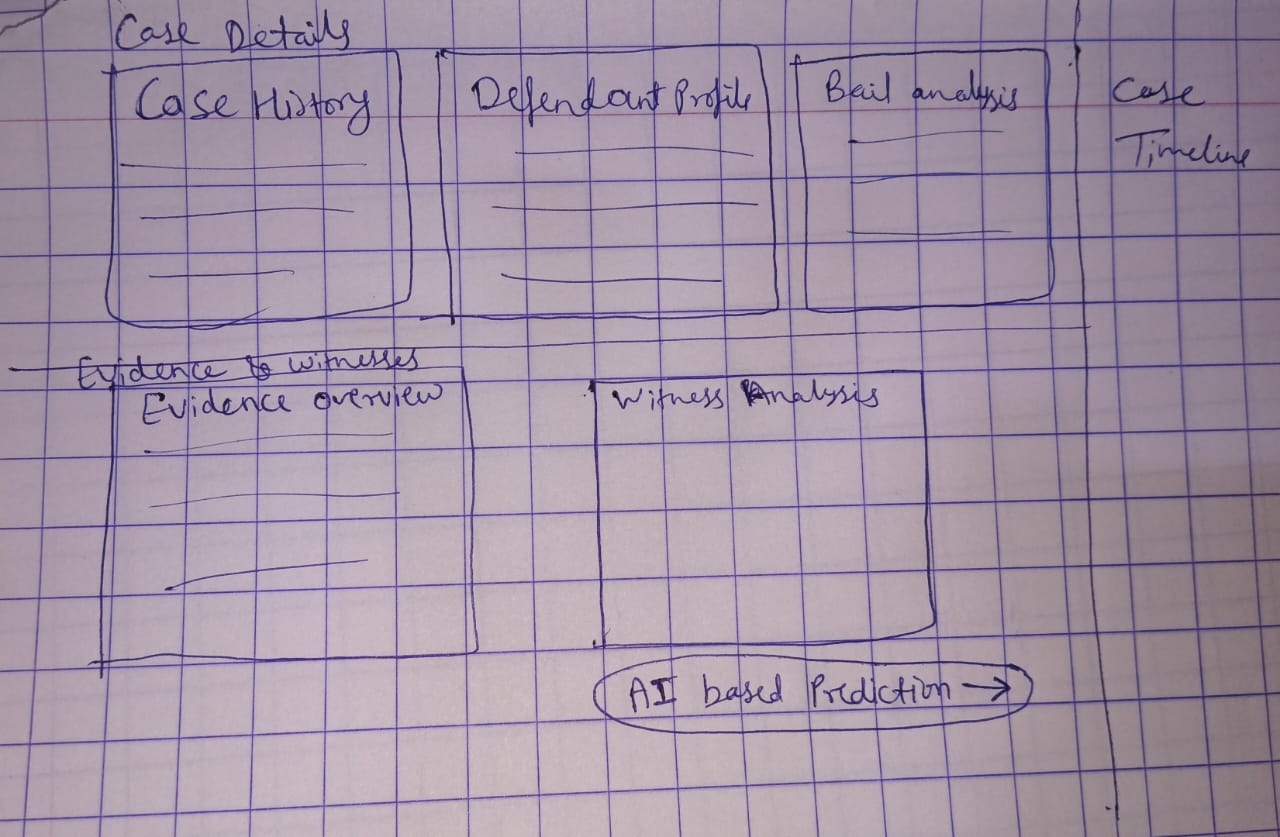 Case Details
Case History
Defendant Profile
Bail analysis
Case
Timeline
Evidence & witnesses
Evidence overview
Witness Analysis
AI based Prediction →